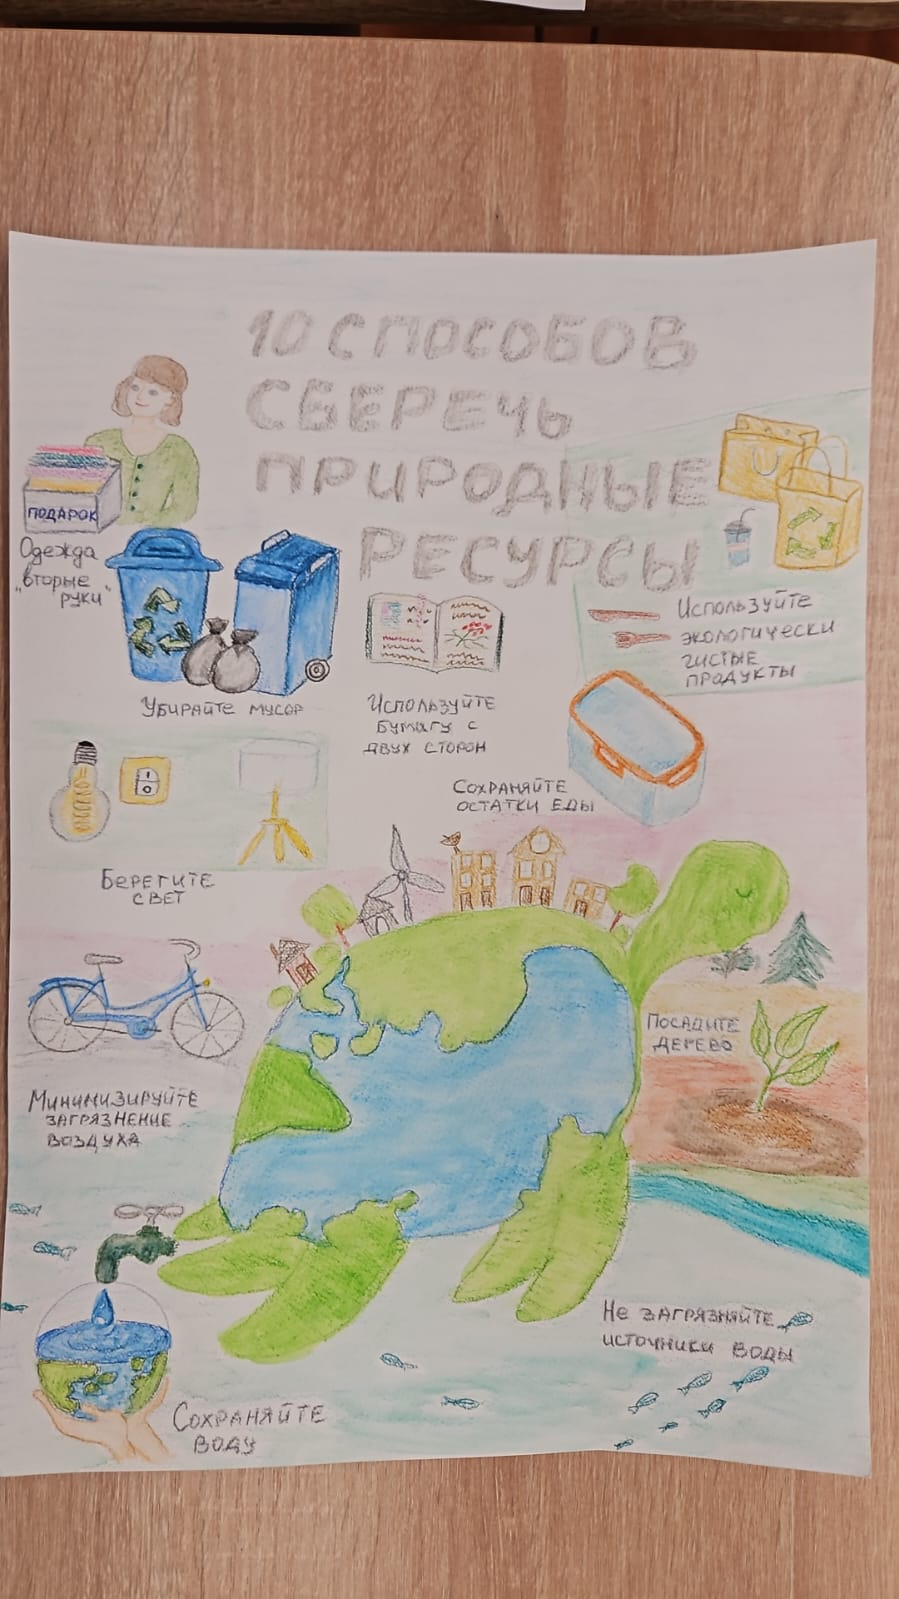 10 СПОСОБОВ
СБЕРЕЧЬ
ПРИРОДНЫЕ
РЕСУРСЫ
ПОДАРОК
Одежда
"вторые
руки"
Убирайте мусор
Используйте
бумагу с
двух сторон
Используйте
экологически
чистые
продукты
Сохраняйте
остатки еды
Берегите
свет
Минимизируйте
загрязнение
воздуха
Посадите
дерево
Не загрязняйте
источники воды
Сохраняйте
воду